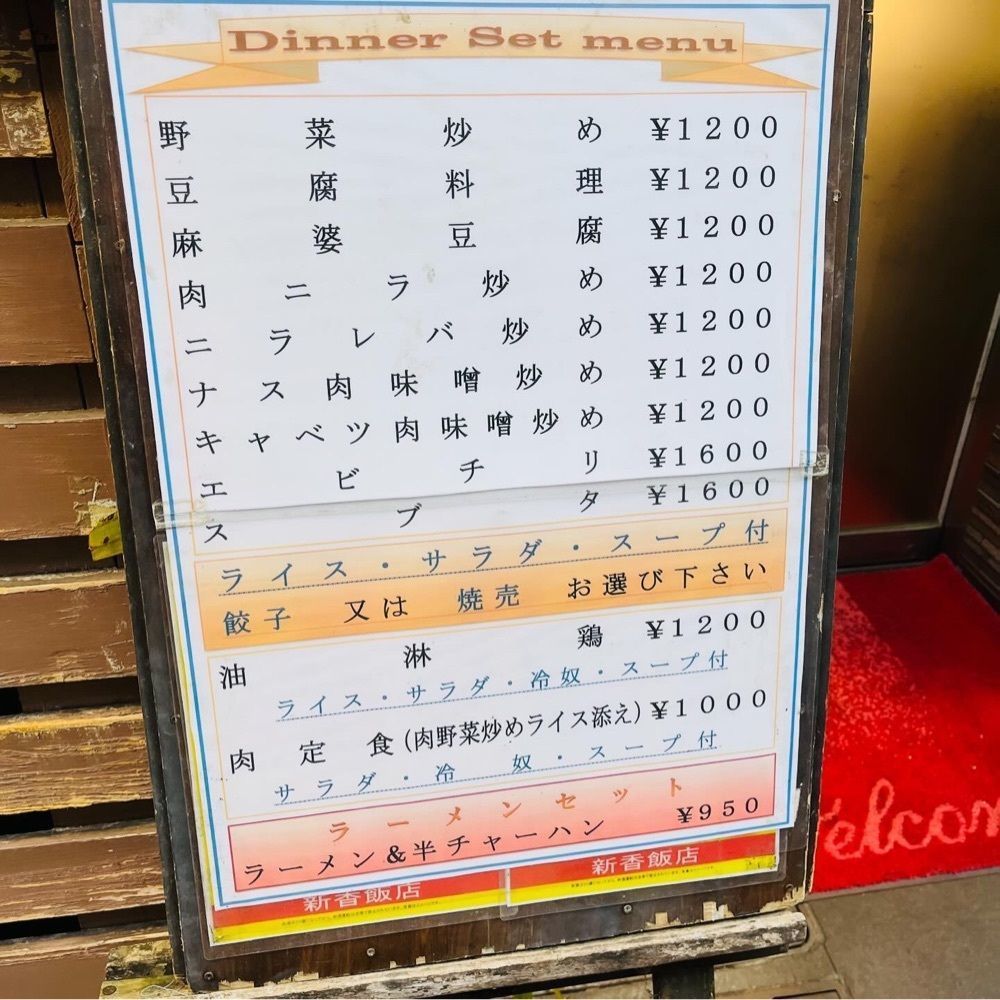 Dinner Set menu
野菜炒め ¥1200
豆腐料理 ¥1200
麻婆豆腐 ¥1200
肉ニラ炒め ¥1200
ニラレバ炒め ¥1200
ナス肉味噌炒め ¥1200
キャベツ肉味噌炒め ¥1200
エビチリ ¥1600
スブタ ¥1600
ライス・サラダ・スープ付
餃子 又は 焼売 お選び下さい
油淋鶏 ¥1200
ライス・サラダ・冷奴・スープ付
肉定食(肉野菜炒めライス添え) ¥1000
サラダ・冷奴・スープ付
ラーメンセット
ラーメン&半チャーハン ¥950
新香飯店
新香飯店